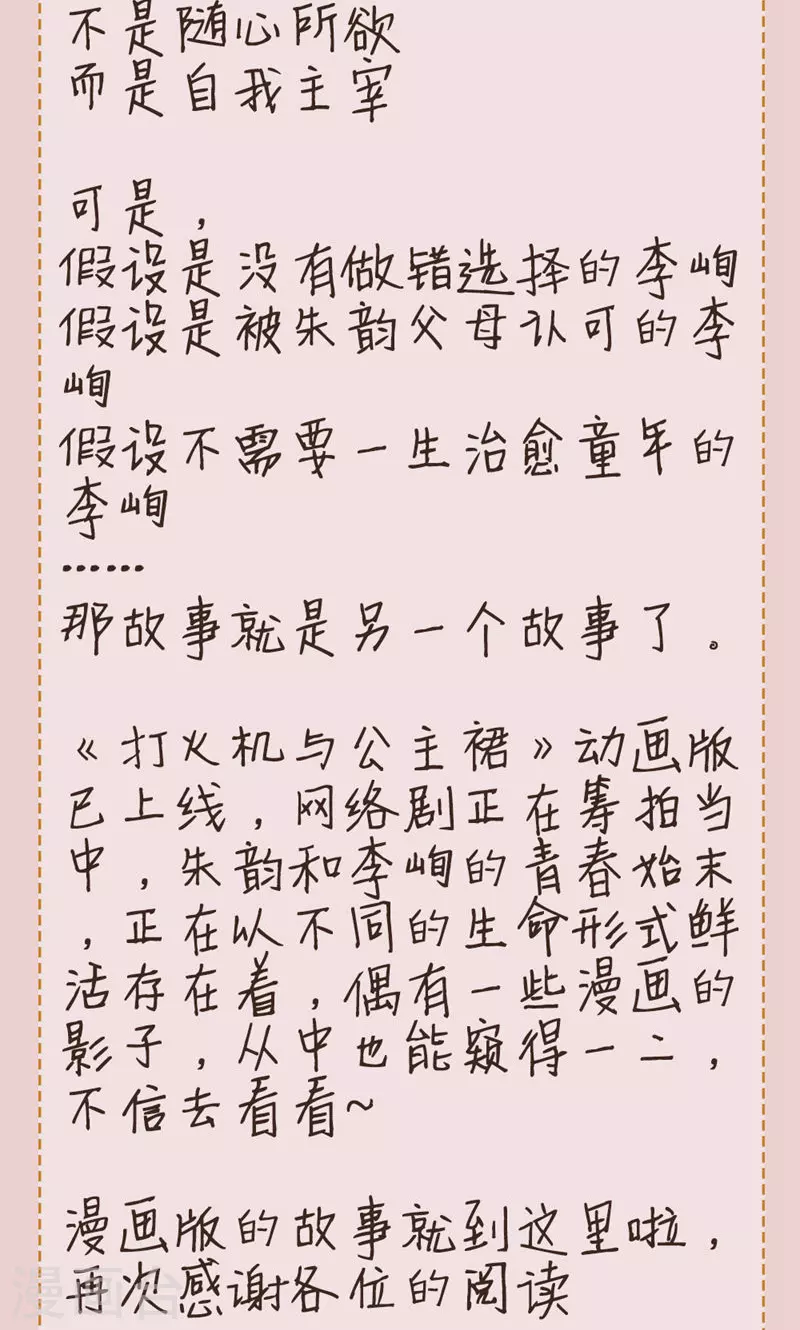 不是随心所欲
而是自我主宰
可是，
假设是没有做错选择的李峋
假设是被朱韵父母认可的李
峋
假设不需要一生治愈童年的
李峋
……
那故事就是另一个故事了。
《打火机与公主裙》动画版
已上线，网络剧正在筹拍当
中，朱韵和李峋的青春始末
，正在以不同的生命形式鲜
活存在着，偶有一些漫画的
影子，从中也能窥得一二，
不信去看看~
漫画版的故事就到这里啦，
再次感谢各位的阅读
漫画台